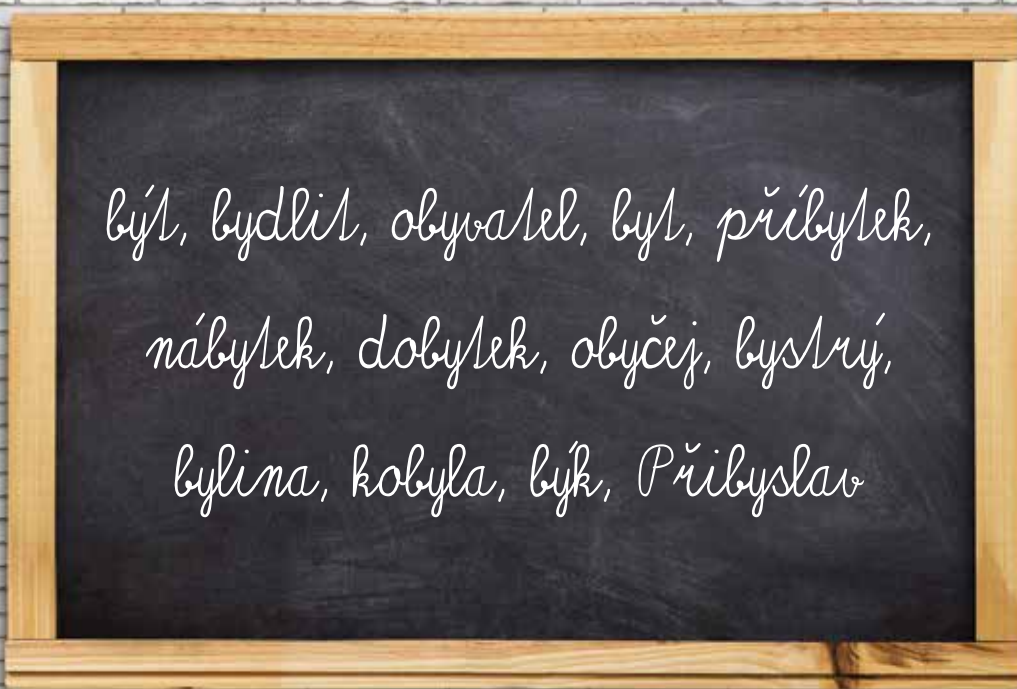 být, bydlit, obyvatel, byt, příbytek,
nábytek, dobytek, obyčej, bystrý,
bylina, kobyla, býk, Přibyslav